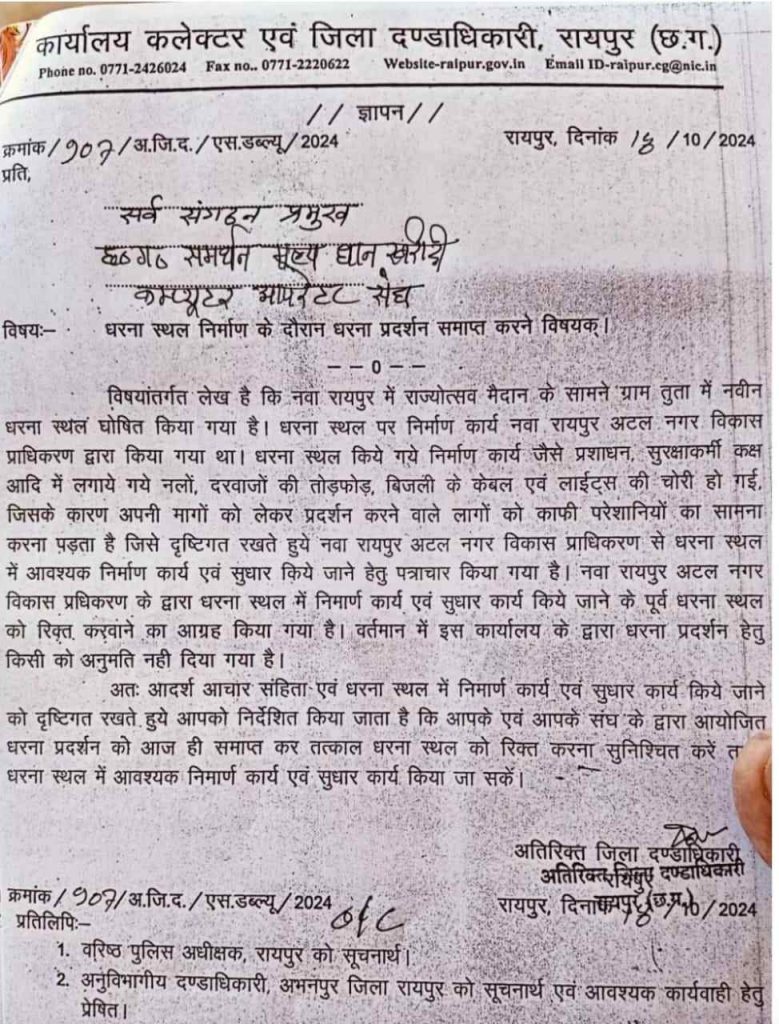 कार्यालय कलेक्टर एवं जिला दण्डाधिकारी, रायपुर (छ.ग.)
Phone no. 0771-2426024 Fax no.. 0771-2220622 Website-raipur.gov.in Email ID-raipur.cg@nic.in
// ज्ञापन//
क्रमांक/907/अ.जि.द./एस.डब्ल्यू/2024 रायपुर, दिनांक 18/10/2024
प्रति,
सर्व संगठन प्रमुख
छ०ग० समर्थन मूल्य धान खरीदी
कम्प्यूटर आपरेटर संघ
विषयः- धरना स्थल निर्माण के दौरान धरना प्रदर्शन समाप्त करने विषयक्।
--0--
विषयांतर्गत लेख है कि नवा रायपुर में राज्योत्सव मैदान के सामने ग्राम तुता में नवीन
धरना स्थल घोषित किया गया है। धरना स्थल पर निर्माण कार्य नवा रायपुर अटल नगर विकास
प्राधिकरण द्वारा किया गया था। धरना स्थल किये गये निर्माण कार्य जैसे प्रशाधन, सुरक्षाकर्मी कक्ष
आदि में लगाये गये नलों, दरवाजों की तोड़फोड़, बिजली के केबल एवं लाईट्स की चोरी हो गई,
जिसके कारण अपनी मागों को लेकर प्रदर्शन करने वाले लागों को काफी परेशानियों का सामना
करना पड़ता है जिसे दृष्टिगत रखते हुये नवा रायपुर अटल नगर विकास प्राधिकरण से धरना स्थल
में आवश्यक निर्माण कार्य एवं सुधार किये जाने हेतु पत्राचार किया गया है। नवा रायपुर अटल नगर
विकास प्रधिकरण के द्वारा धरना स्थल में निमार्ण कार्य एवं सुधार कार्य किये जाने के पूर्व धरना स्थल
को रिक्त करवाने का आग्रह किया गया है। वर्तमान में इस कार्यालय के द्वारा धरना प्रदर्शन हेतु
किसी को अनुमति नही दिया गया है।
अतः आदर्श आचार संहिता एवं धरना स्थल में निमार्ण कार्य एवं सुधार कार्य किये जाने
को दृष्टिगत रखते हुये आपको निर्देशित किया जाता है कि आपके एवं आपके संघ के द्वारा आयोजित
धरना प्रदर्शन को आज ही समाप्त कर तत्काल धरना स्थल को रिक्त करना सुनिश्चित करें
धरना स्थल में आवश्यक निमार्ण कार्य एवं सुधार कार्य किया जा सकें।
अतिरिक्त जिला दण्डाधिकारी
अतिरिक्त दण्डाधिकारी
क्रमांक/907/अ.जि.द./एस.डब्ल्यू/2024 रायपुर, दिनांक 18/10/2024
रायपुर (छ.ग.)
प्रतिलिपिः- o/c
1. वरिष्ठ पुलिस अधीक्षक, रायपुर को सूचनार्थ।
2. अनुविभागीय दण्डाधिकारी, अभनपुर जिला रायपुर को सूचनार्थ एवं आवश्यक कार्यवाही हेतु
प्रेषित।